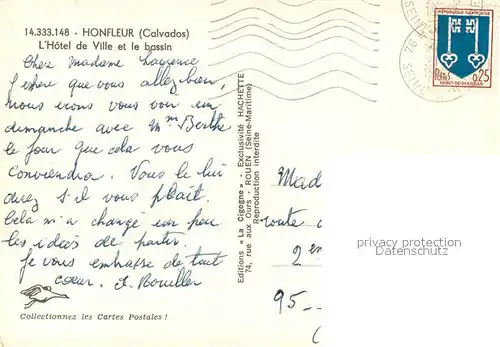 14.333.148 - HONFLEUR (Calvados)
L'Hôtel de Ville et le bassin
Chez Madame Laurence
J'espère que vous allez bien,
nous irons vous voir un
dimanche avec Mme Berthe
le jour que cela vous
conviendra. Vous le lui
direz s'il vous plaît.
Cela m'a changé un peu
les idées de partir.
Je vous embrasse de tout
cœur. J. Bouiller
Collectionnez les Cartes Postales !
Editions « La Cigogne » - Exclusivité HACHETTE
74, rue aux Ours - ROUEN (Seine-Maritime)
Reproduction interdite
REPUBLIQUE FRANCAISE
POSTES
0,25
MONT-DE-MARSAN
76
SEINE
Mad
route
2 en
95 —
privacy protection
Datenschutz